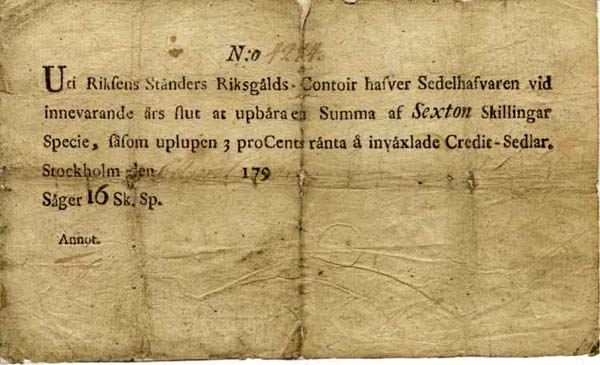 N:o
Uti Riksens Ständers Riksgålds-Contoir hafver Sedelhafvaren vid
innevarande års slut at upbåra en Summa af Sexton Skillingar
Specie, såsom uplupen 3 proCents rånta å invåxlade Credit-Sedlar.
Stockholm den 179
Såger 16 Sk. Sp.
Annot.